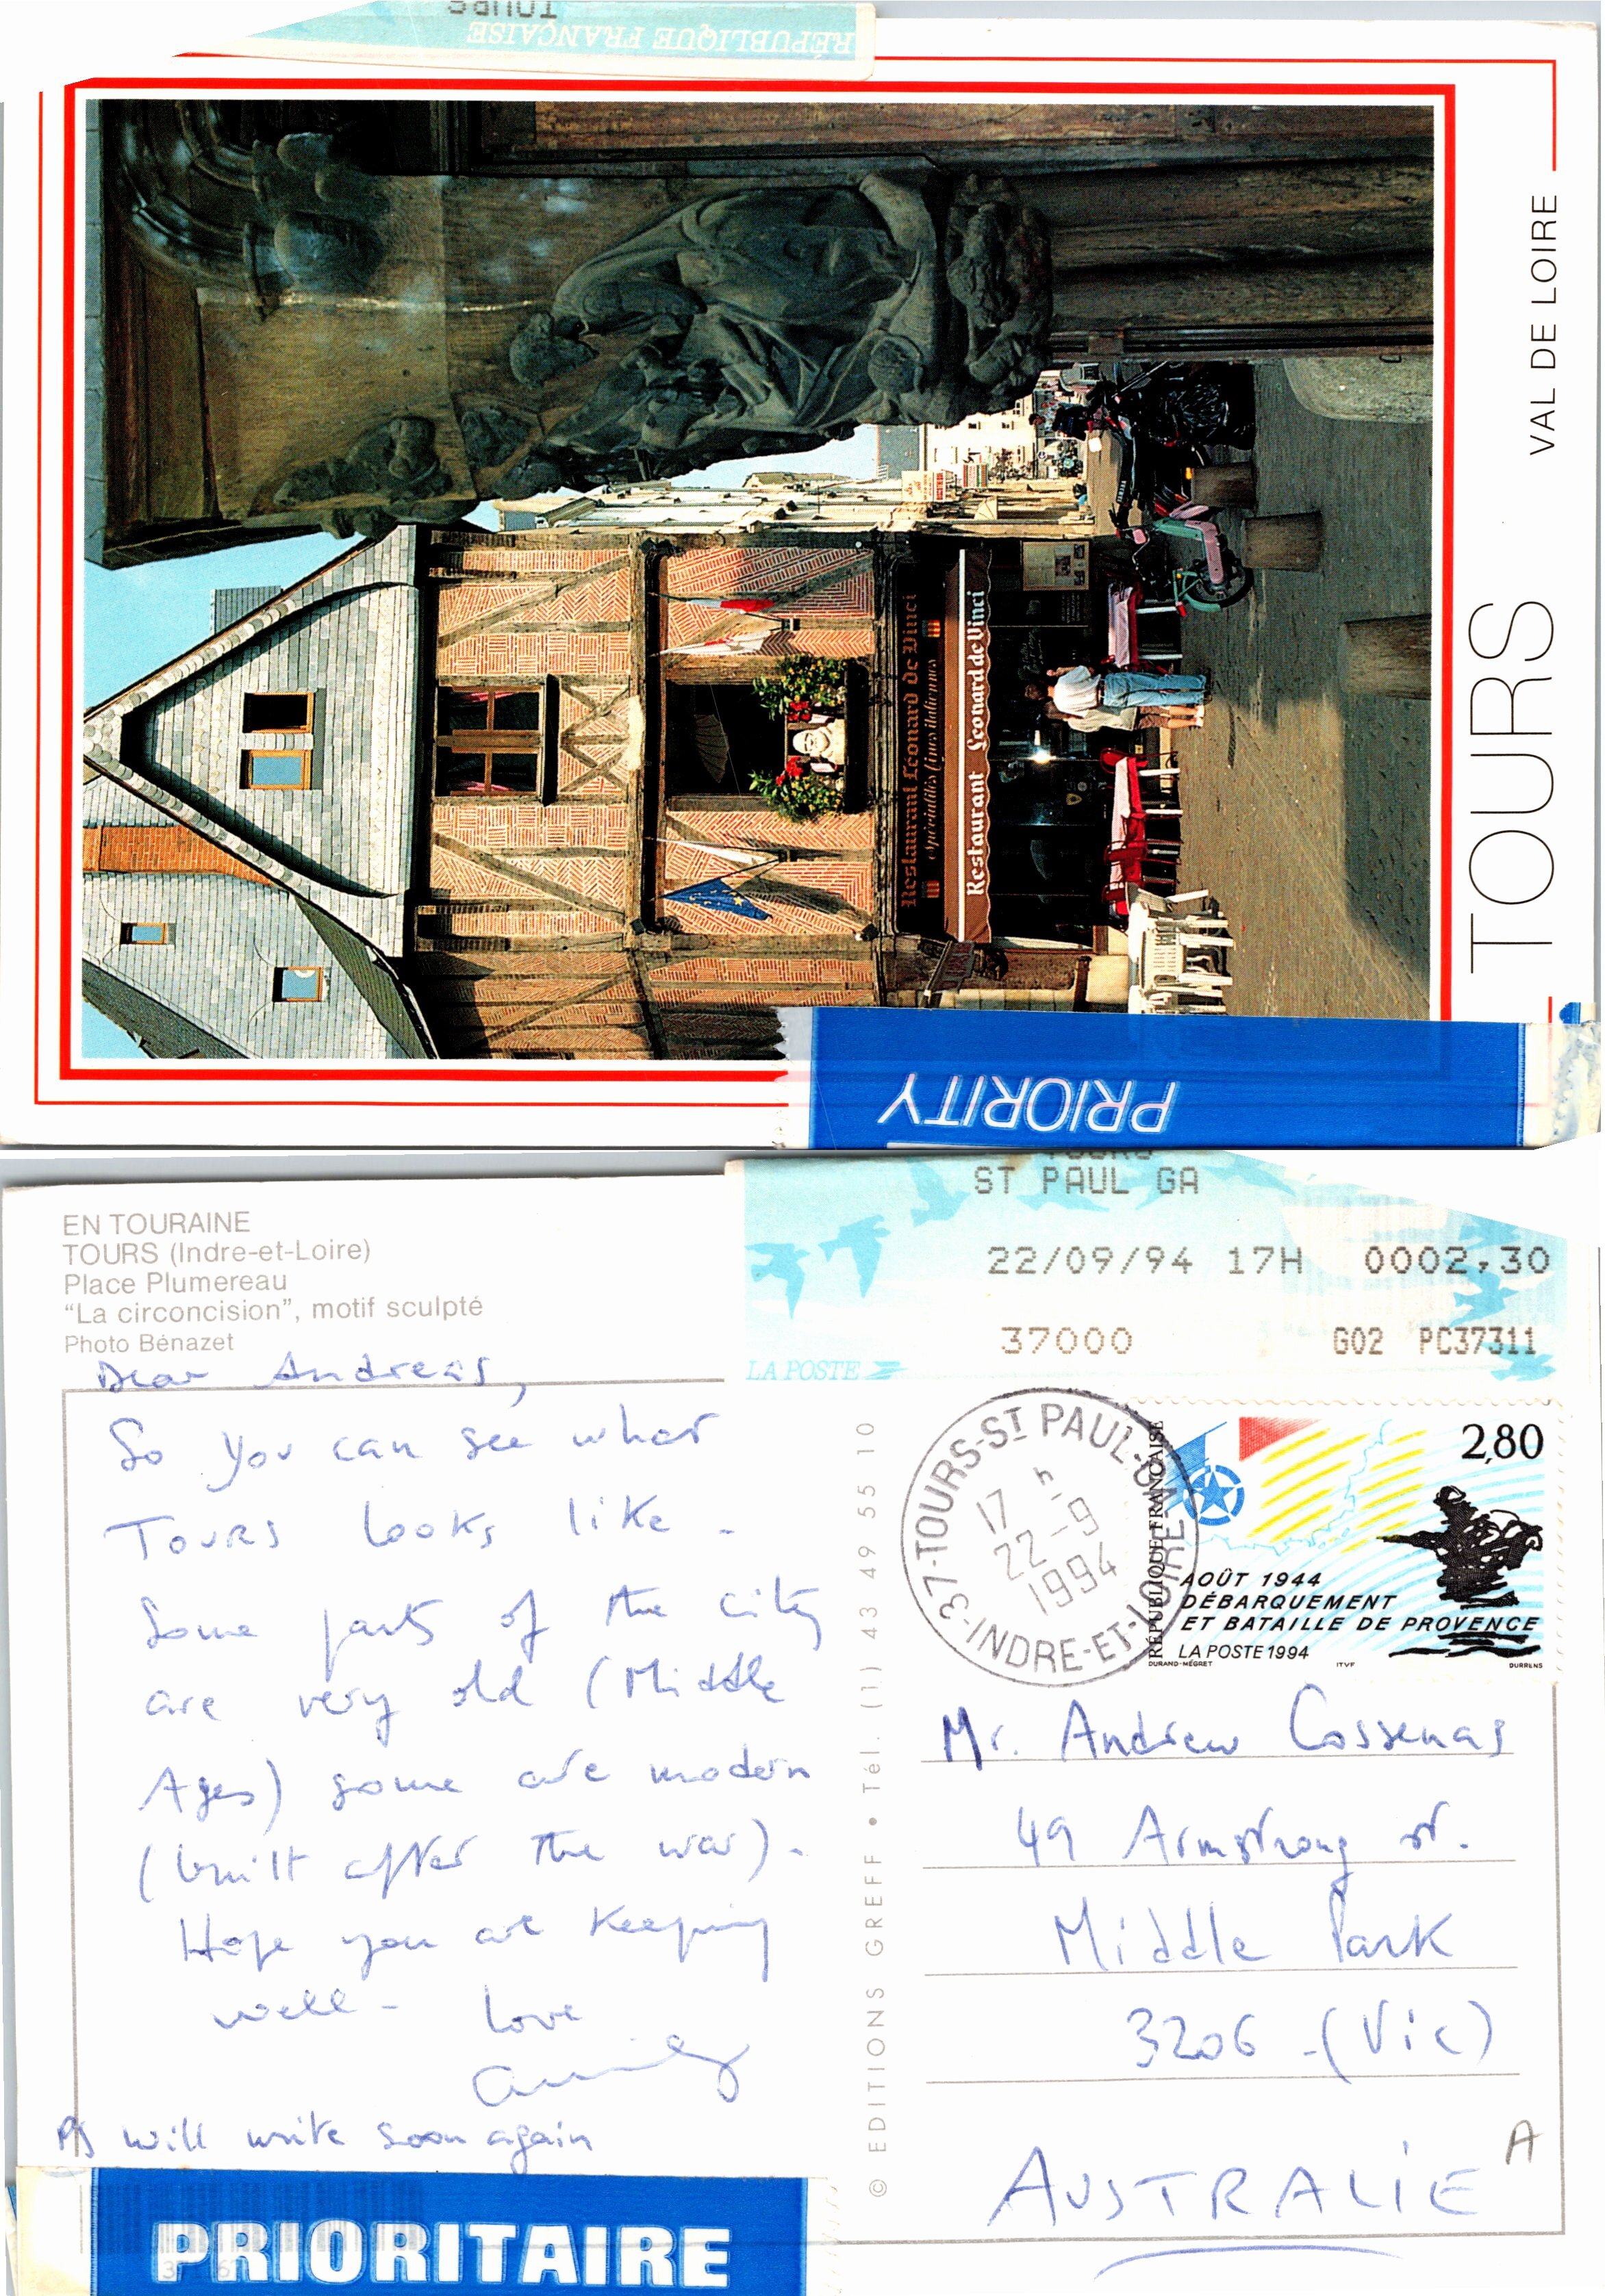 TOURS
RÉPUBLIQUE FRANÇAISE
Restaurant Léonard de Vinci
Spécialités Vinos Italiennes
Restaurant Leonard de Vinci
TOURS VAL DE LOIRE
PRIORITY
ST PAUL GA
22/09/94 17H 0002,30
37000 G02 PC37311
LA POSTE
EN TOURAINE
TOURS (Indre-et-Loire)
Place Plumereau
“La circoncision”, motif sculpté
Photo Bénazet
Dear Andreas,
So you can see what
Tours looks like.
Some parts of the city
are very old (Middle
Ages) some are modern
(built after the war).
Hope you are keeping
well - Love
PS will write soon again
PRIORITAIRE
© EDITIONS GREFF • Tél. (1) 43 49 55 10
37-TOURS-ST PAUL-GA
INDRE-ET-LOIRE
17 h
22-9
1994
RÉPUBLIQUE FRANÇAISE
2,80
AOÛT 1944
DÉBARQUEMENT
ET BATAILLE DE PROVENCE
LA POSTE 1994
DURAND-MÉGRET ITVF DURRENS
Mr. Andrew Cossenas
49 Armstrong st.
Middle Park
3206 - (Vic)
AUSTRALIE
A